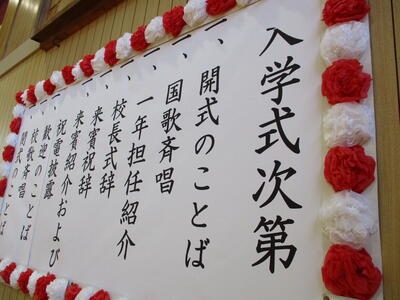 入学式次第
一、開式のことば
一、国歌斉唱
一、一年担任紹介
一、校長式辞
一、来賓祝辞
一、来賓紹介および
祝電披露
一、歓迎のことば
一、校歌斉唱
一、閉式のことば